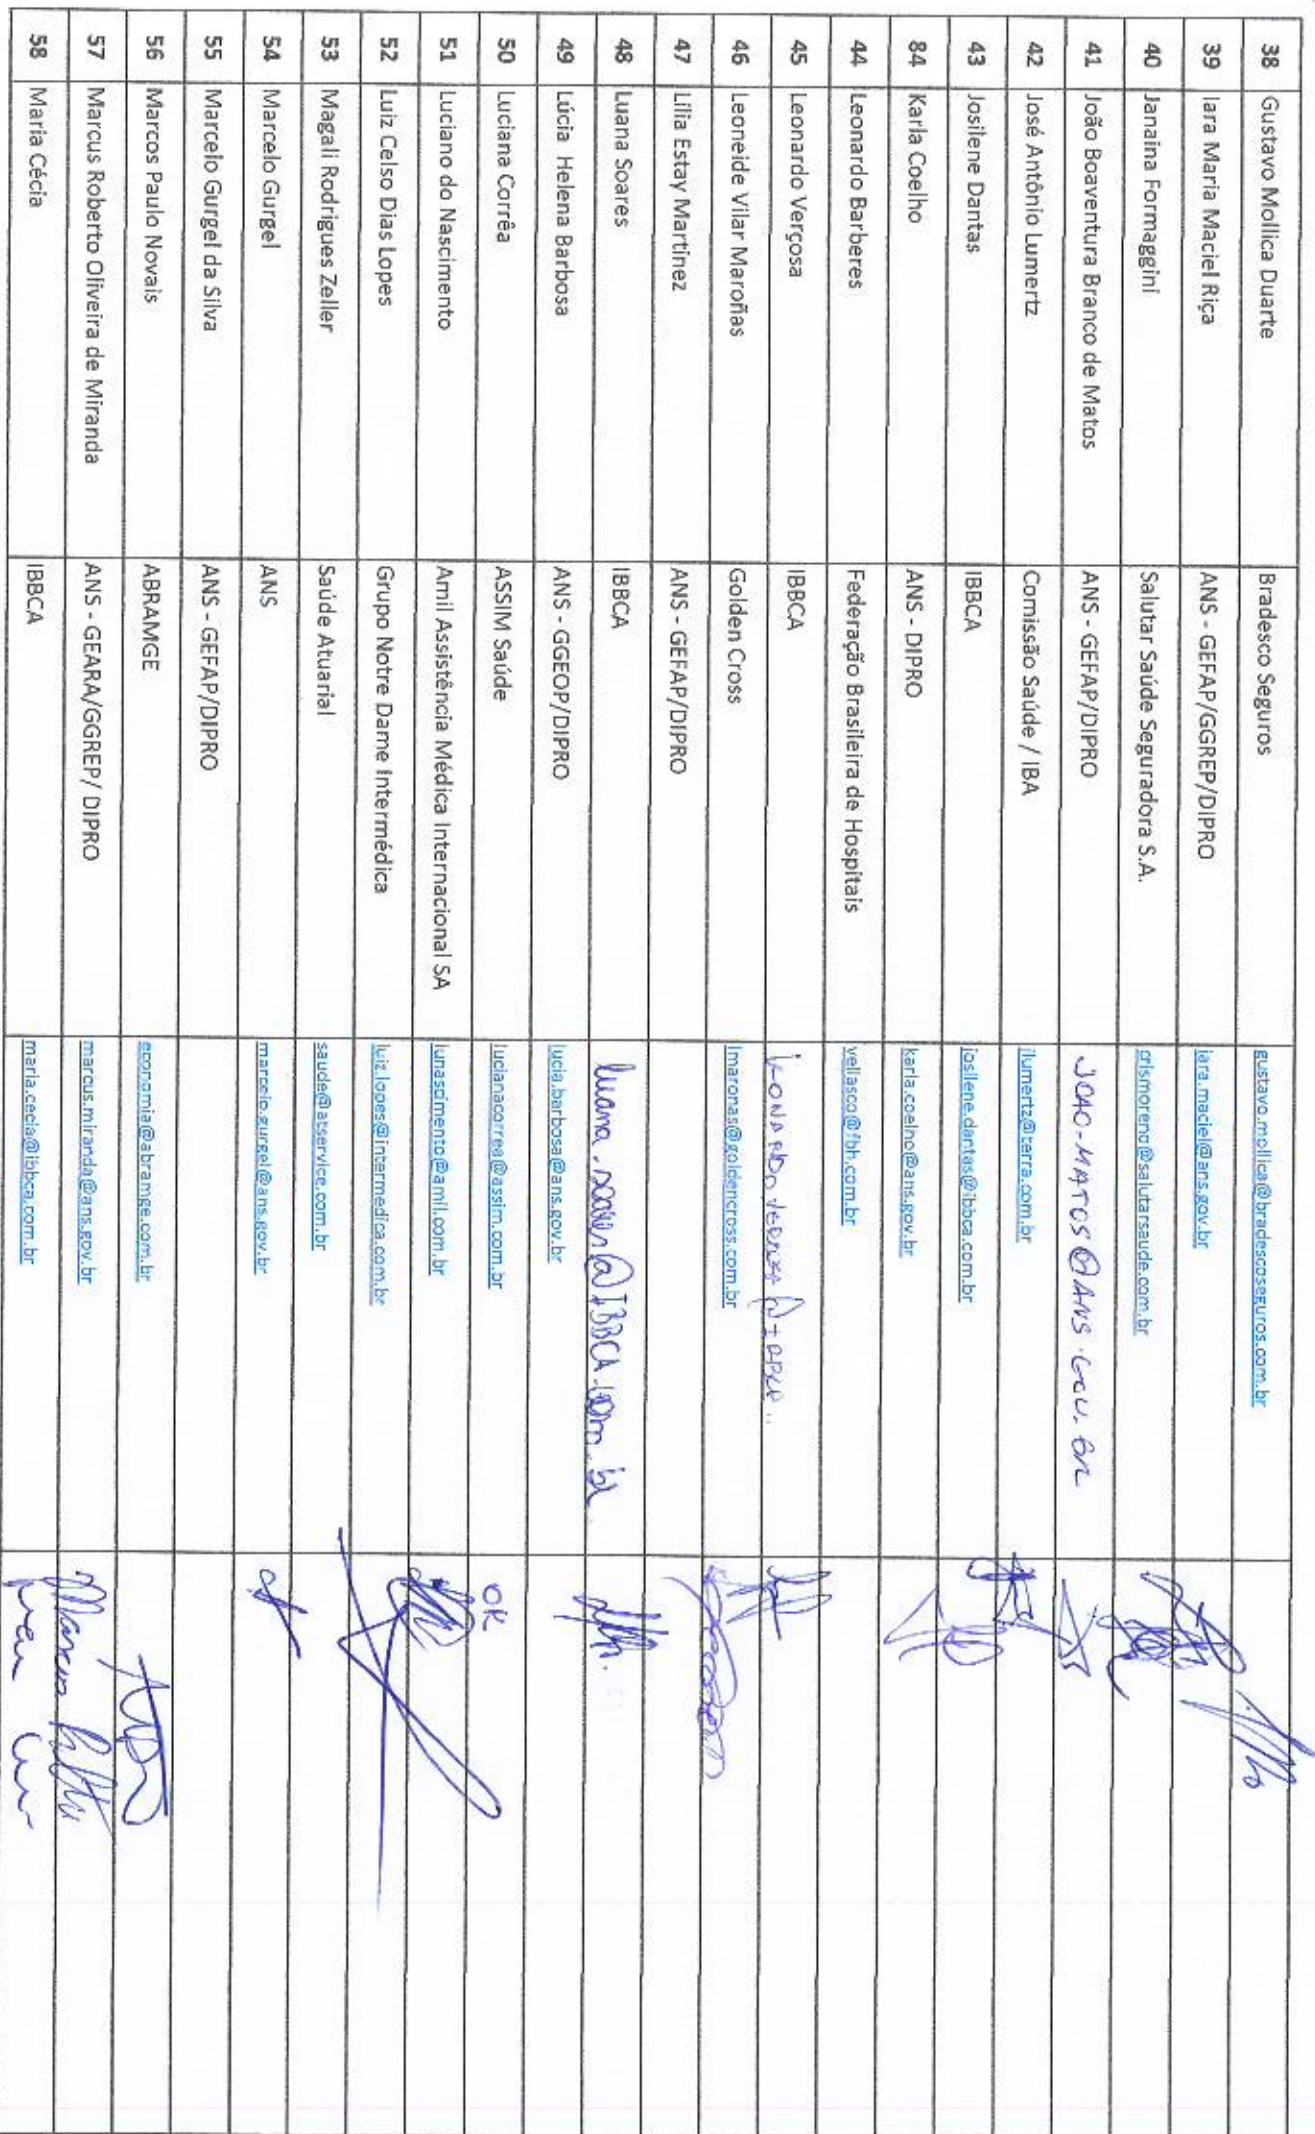 38 Gustavo Mollica Duarte Bradesco Seguros gustavo.mollica@bradescoseguros.com.br
39 Iara Maria Maciel Riça ANS - GEFAP/GGREP/DIPRO iara.maciel@ans.gov.br
40 Janaina Formaggini Salutar Saúde Seguradora S.A. crismoreno@salutarsaude.com.br
41 João Boaventura Branco de Matos ANS - GEFAP/DIPRO JOAO-MATOS@ANS.GOV.BR
42 José Antônio Lumertz Comissão Saúde / IBA jlumertz@terra.com.br
43 Josilene Dantas IBBCA josilene.dantas@ibbca.com.br
84 Karla Coelho ANS - DIPRO karla.coelho@ans.gov.br
44 Leonardo Barberes Federação Brasileira de Hospitais vellasco@fbh.com.br
45 Leonardo Verçosa IBBCA
46 Leoneide Vilar Maroñas Golden Cross lmaronas@goldencross.com.br
47 Lília Estay Martínez ANS - GEFAP/DIPRO
48 Luana Soares IBBCA luana.soares@IBBCA.com.br
49 Lúcia Helena Barbosa ANS - GGEOP/DIPRO lucia.barbosa@ans.gov.br
50 Luciana Corrêa ASSIM Saúde lucianacorrea@assim.com.br OK
51 Luciano do Nascimento Amil Assistência Médica Internacional SA lunascimento@amil.com.br
52 Luiz Celso Dias Lopes Grupo Notre Dame Intermédica luiz.lopes@intermedica.com.br
53 Magali Rodrigues Zeller Saúde Atuarial saude@atservice.com.br
54 Marcelo Gurgel ANS marcelo.gurgel@ans.gov.br
55 Marcelo Gurgel da Silva ANS - GEFAP/DIPRO
56 Marcos Paulo Novais ABRAMGE economia@abramge.com.br
57 Marcus Roberto Oliveira de Miranda ANS - GEARA/GGREP/ DIPRO marcus.miranda@ans.gov.br
58 Maria Cécia IBBCA maria.cecia@ibbca.com.br